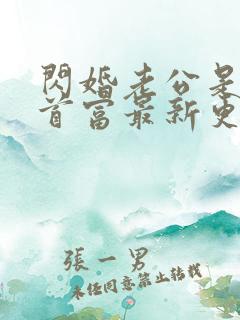 閃婚老公是
首富最新更
張一男
未經同意禁止轉載